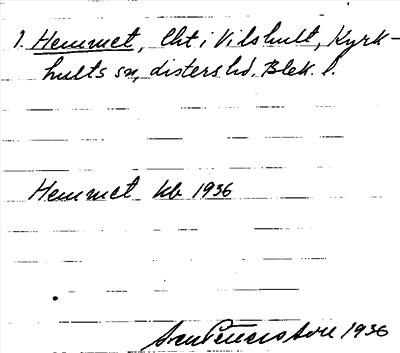 1. Hemmet, Lht i Vilshult, Kyrk-
hults sn, Listers hd. Blek. l.
Hemmet kb 1936
Sven Benson 1936